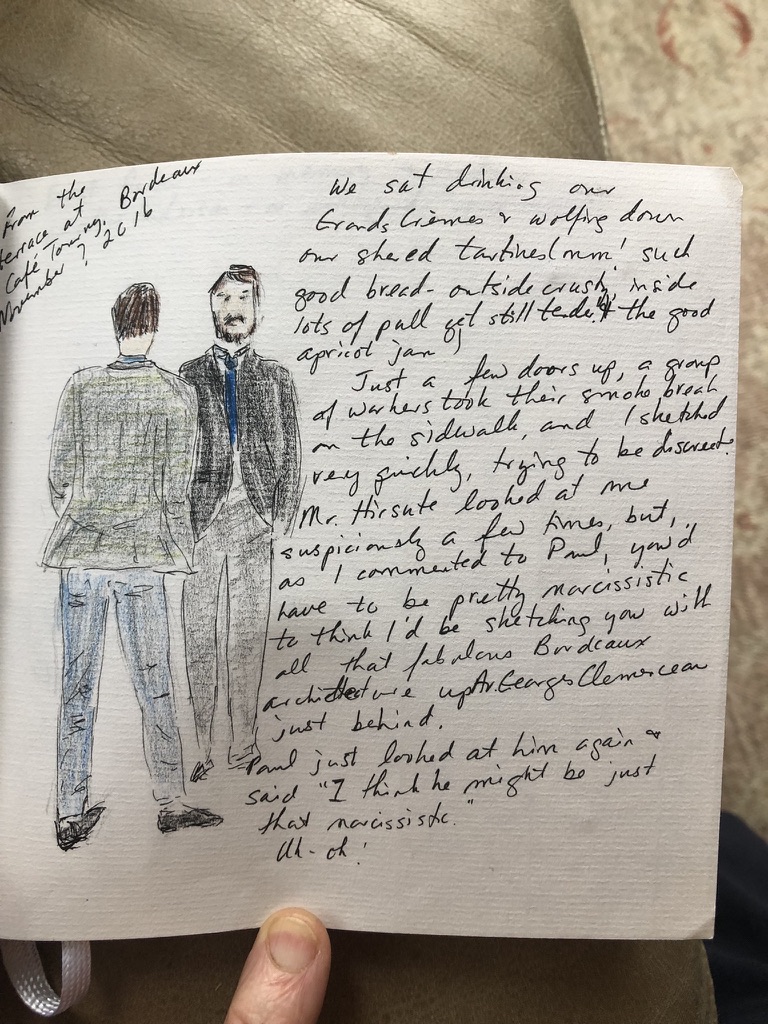 From the
terrace at
Café Tourny, Bordeaux
November 7, 2016
We sat drinking our
Grands Crèmes & wolfing down
our shared tartines (mm! such
good bread - outside crusty, inside
lots of pull yet still tender & the good
apricot jam)
Just a few doors up, a group
of workers took their smoke break
on the sidewalk, and I sketched
very quickly, trying to be discreet.
Mr. Hirsute looked at me
suspiciously a few times, but,
as I commented to Paul, you'd
have to be pretty narcissistic
to think I'd be sketching you with
all that fabulous Bordeaux
architecture up Av. Georges Clemenceau
just behind.
Paul just looked at him again &
said "I think he might be just
that narcissistic."
Uh-oh!